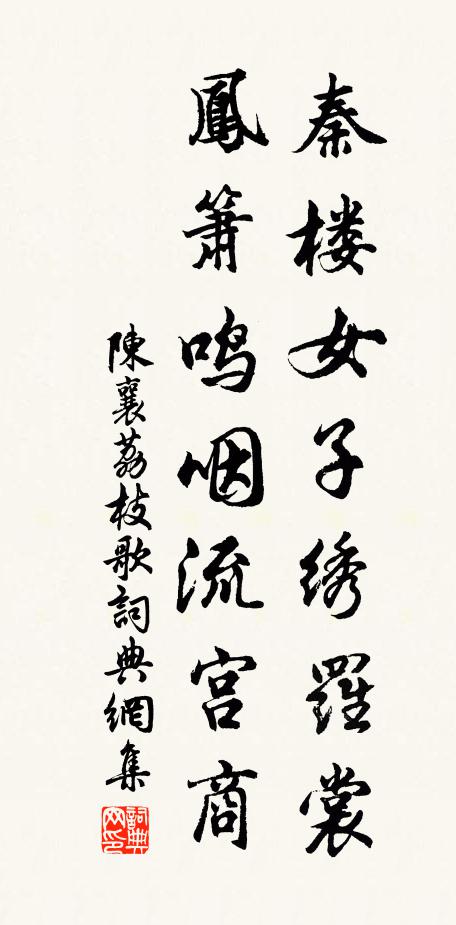 秦楼女子绣羅裳
鳳箫鸣咽流宫商
陳襄荔枝歌詞典網集
詞典网印